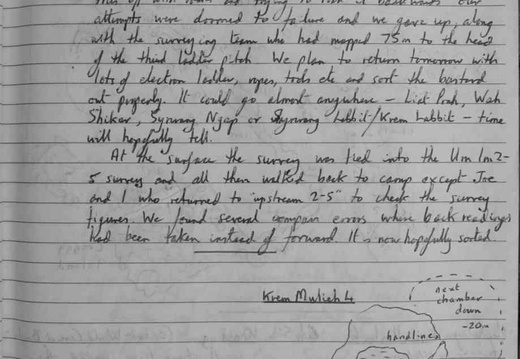 attempts were doomed to failure and we gave up, along
with the surveying team who had mapped 75m to the head
of the third ladder pitch. We plan to return tomorrow with
lots of electron ladder, ropes, tools etc and sort the bastard
out properly. It could go almost anywhere – Liat Prah, Wah
Shikar, Synrang Ngap or Synrang Labbit/Krem Labbit – time
will hopefully tell.
At the surface the survey was tied into the Um Im2-
5 survey and all then walked back to camp except Joe
and I who returned to "upstream 2-5" to check the survey
figures. We found several compass errors where back readings
had been taken instead of forward. It is now hopefully sorted.
Krem Mulieh 4
next
chamber
down
-20m
handlines